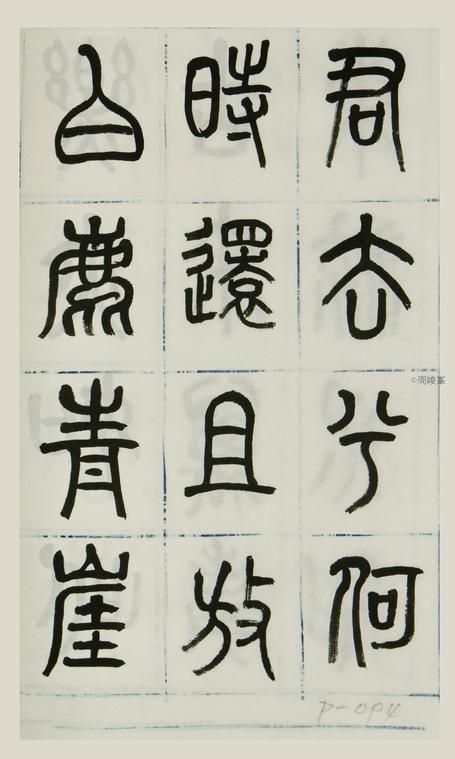 君去兮何
時還且放
白鹿青崖
©周峻峯
P-094